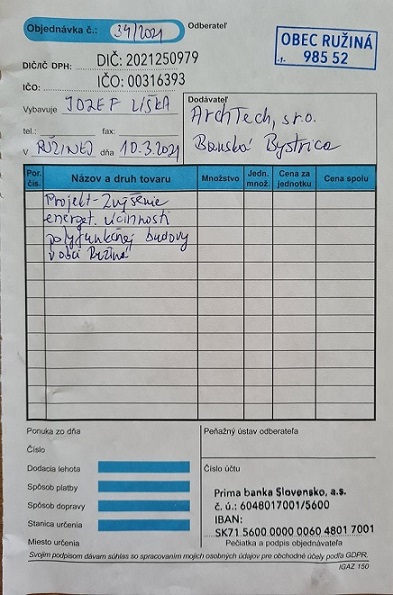 Objednávka č.: 34/2021
Odberateľ
OBEC RUŽINÁ
985 52
DIČ/IČ DPH: DIČ: 2021250979
IČO: IČO: 00316393
Vybavuje JOZEF LÍŠKA
Dodávateľ
ArchTech, s.r.o.
Banská Bystrica
tel.: fax:
V RUŽINEJ dňa 10.3.2021
Por. čís. Názov a druh tovaru Množstvo Jedn. množ. Cena za jednotku Cena spolu
Projekt - Zvýšenie
energet. účinnosti
polyfunkčnej budovy
v obci Ružiná
Ponuka zo dňa
Číslo
Dodacia lehota
Spôsob platby
Spôsob dopravy
Stanica určenia
Miesto určenia
Peňažný ústav odberateľa
Číslo účtu
Prima banka Slovensko, a.s.
č. ú.: 6048017001/5600
IBAN:
SK71 5600 0000 0060 4801 7001
Pečiatka a podpis objednávateľa
Svojim podpisom dávam súhlas so spracovaním mojich osobných údajov pre obchodné účely podľa GDPR.
IGAZ 150